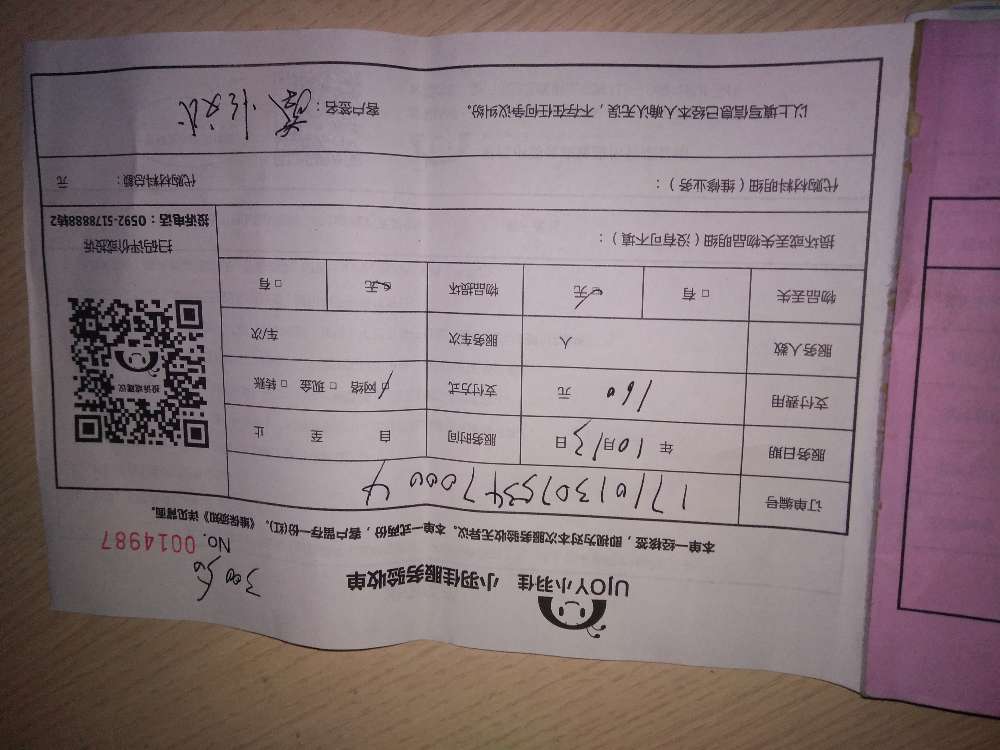 UJOY小羽佳 小羽佳服务验收单
30056
No. 0014987
本单一经核签，即视为对本次服务验收无异议。本单一式两份，客户留存一份(红)。《维保须知》详见背面。
订单编号 1710130753470004
服务日期 年 10月13日 服务时间 自 至 止
支付费用 160 元 支付方式 ☑网络 □现金 □转账
服务人数 人 服务车次 车/次
物品丢失 □有 ☑无 物品损坏 ☑无 □有
损坏或丢失物品明细（没有可不填）：
投诉或建议
扫码评价或投诉
投诉电话：0592-5178888转2
代购材料明细（维修业务）：
代购材料总额： 元
以上填写信息已经本人确认无误，不存在任何争议纠纷。
客户签名：